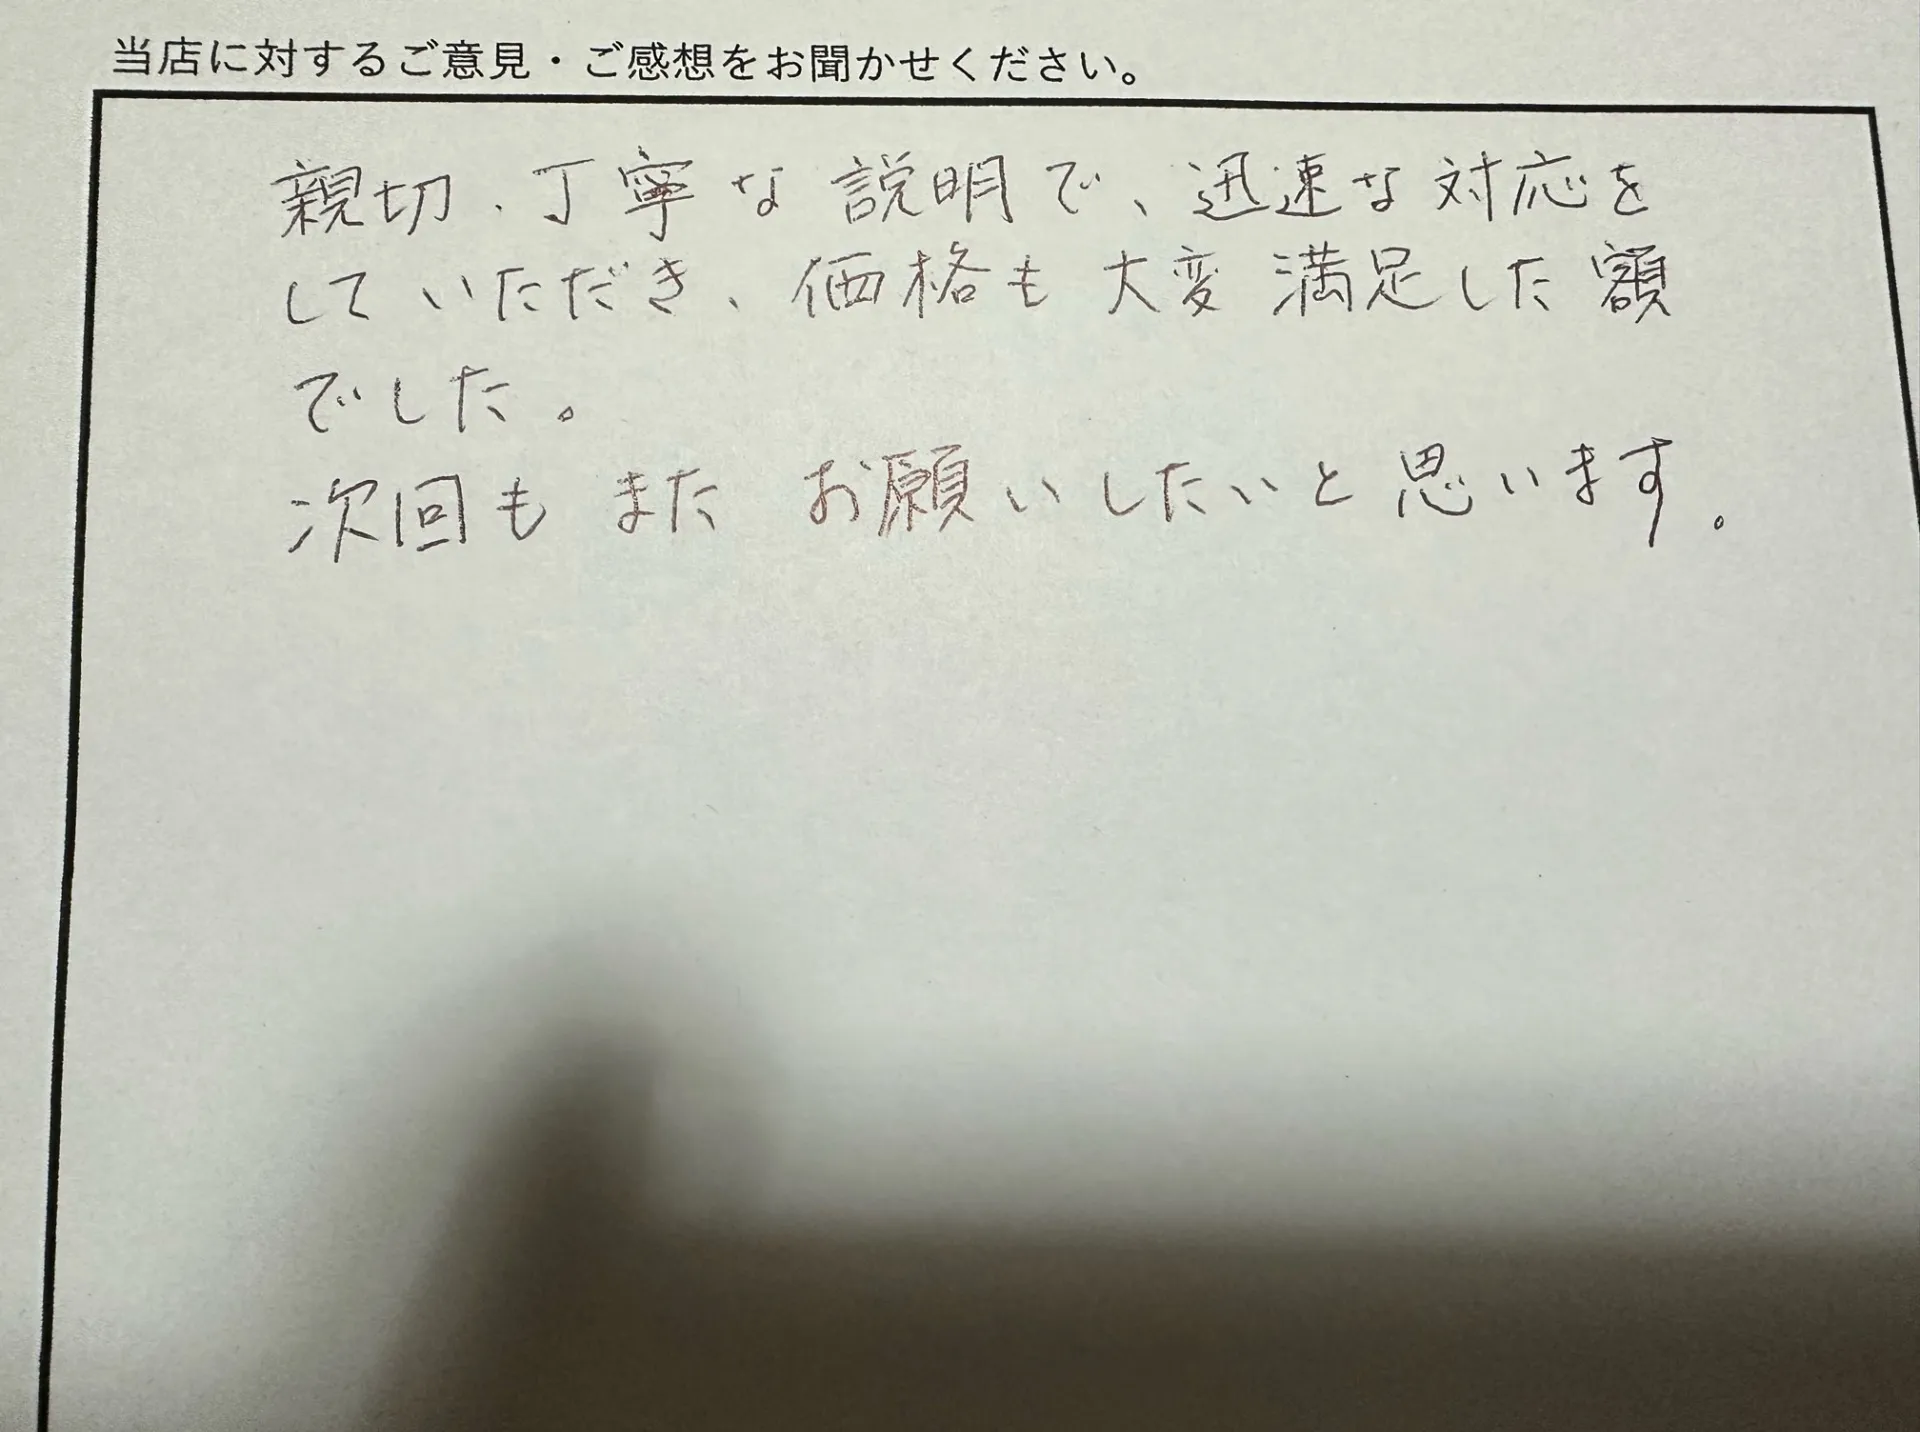 当店に対するご意見・ご感想をお聞かせください。
親切、丁寧な説明で、迅速な対応を
していただき、価格も大変満足した額
でした。
次回もまたお願いしたいと思います。